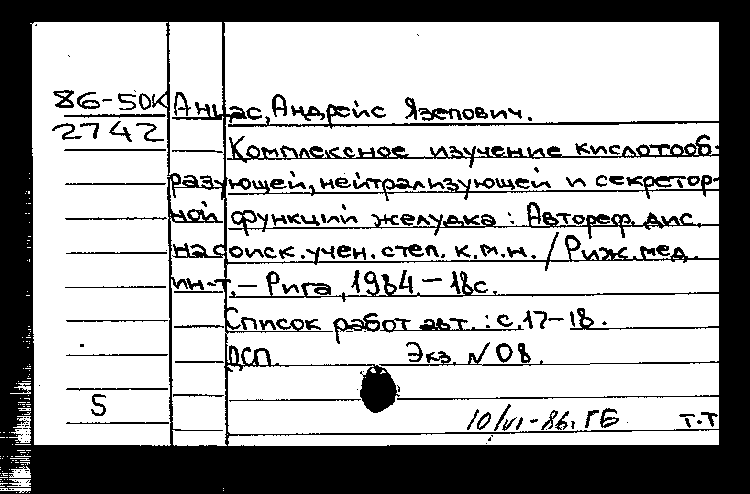 86-50К Анцас, Андрейс Язепович.
2742
Комплексное изучение кислотооб-
разующей, нейтрализующей и секретор-
ной функций желудка : Автореф. дис.
на соиск. учен. степ. к.м.н. / Риж. мед.
ин-т. – Рига, 1984. – 18с.
Список работ авт. : с.17–18.
ДСП. Экз. N 08.
5
10/VI-86. ГБ Т.Т